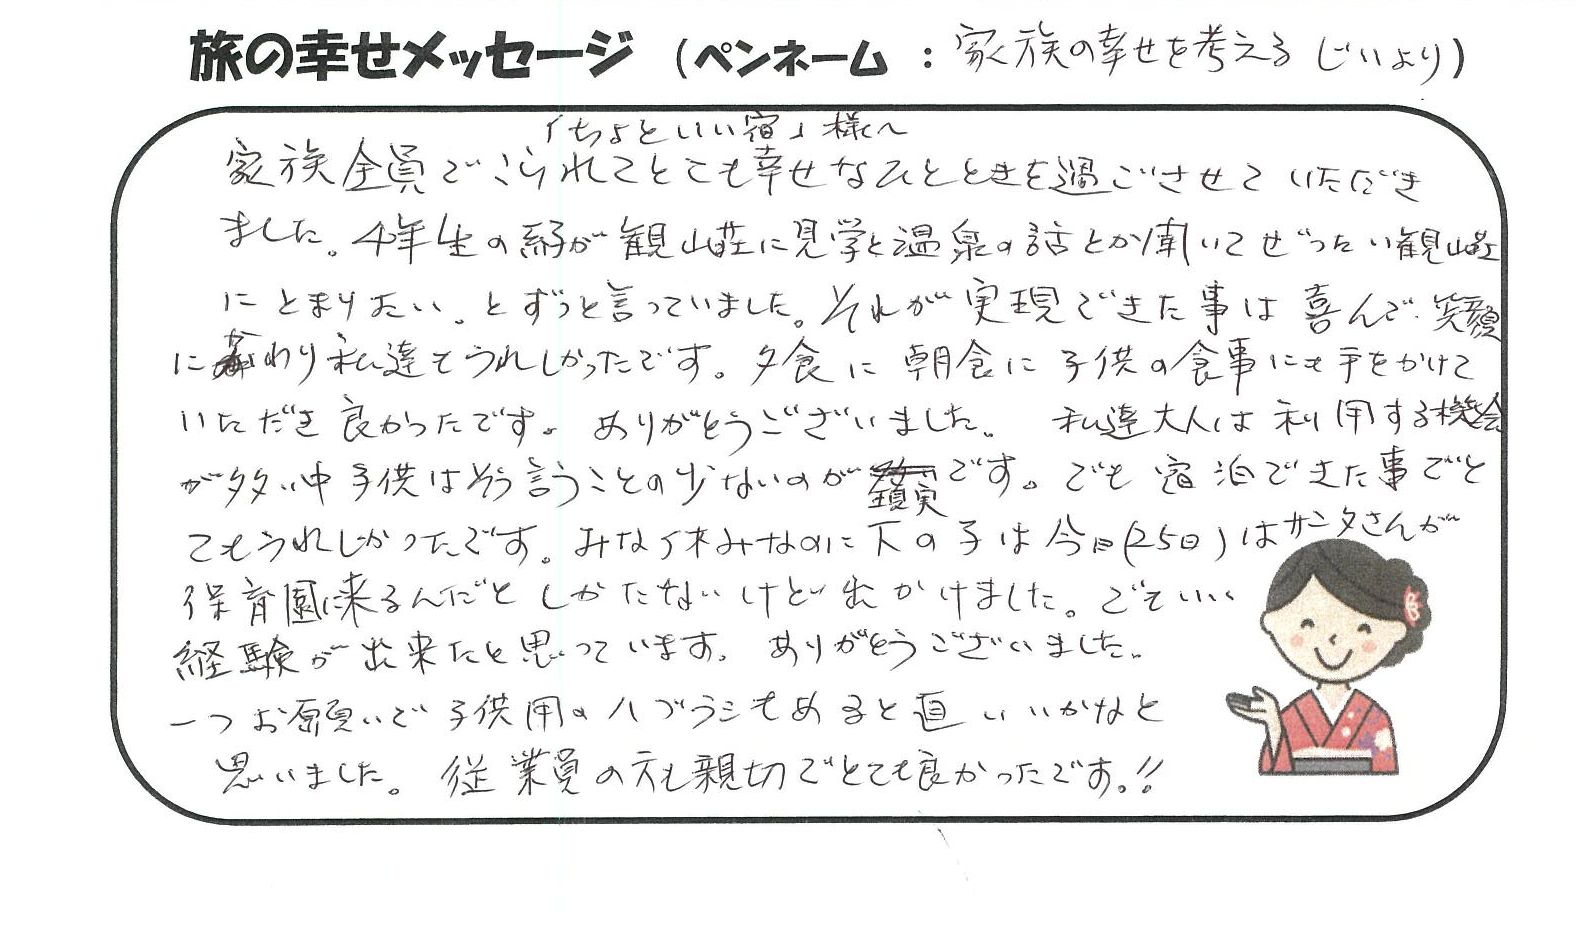 旅の幸せメッセージ (ペンネーム : 家族の幸せを考える じいより)
「ちょといい宿」様へ
家族全員でこられてとても幸せなひとときを過ごさせていただき
ました。4年生の孫が観山荘に見学と温泉の話とか聞いてぜったい観山荘
にとまりたい。とずっと言っていました。それが実現できた事は喜んで笑顔
に変わり私達もうれしかったです。夕食に朝食に子供の食事にも手をかけて
いただき良かったです。ありがとうございました。 私達大人は利用する機会
が多い中子供はそう言うことの少ないのが現実です。でも宿泊できた事でと
てもうれしかったです。みな休みなのに下の子は今日(25日)はサンタさんが
保育園に来るんだとしかたないけど出かけました。とてもいい
経験が出来たと思っています。ありがとうございました。
一つお願いで子供用のハブラシもあると良いかなと
思いました。従業員の方も親切でとても良かったです。!!